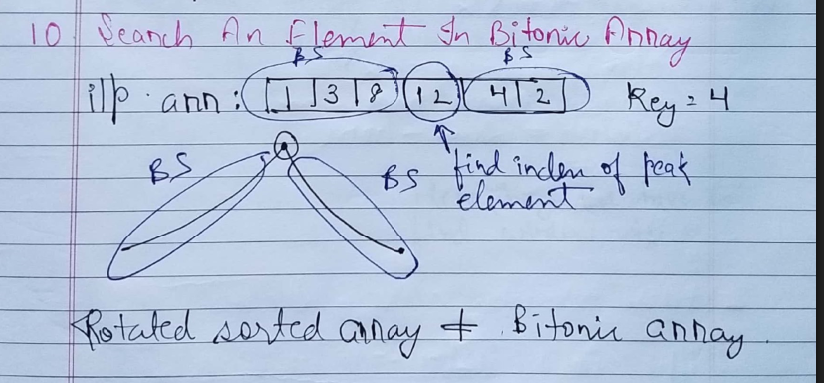 10. Search An Element In Bitonic Array
BS BS
i/p arr: 1 3 8 12 4 2 Key = 4
BS BS find index of peak
element
Rotated sorted array ≠ Bitonic array.